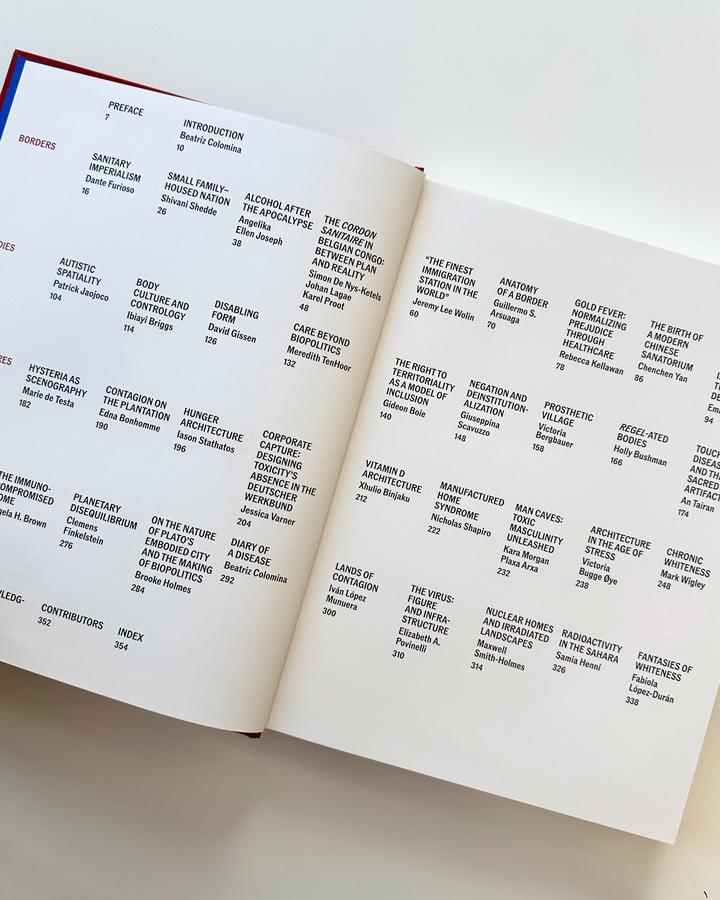 PREFACE
7
INTRODUCTION
Beatriz Colomina
10
BORDERS
SANITARY
IMPERIALISM
Dante Furioso
16
SMALL FAMILY–
HOUSED NATION
Shivani Shedde
26
ALCOHOL AFTER
THE APOCALYPSE
Angelika
Ellen Joseph
38
THE CORDON
SANITAIRE IN
BELGIAN CONGO:
BETWEEN PLAN
AND REALITY
Simon De Nys-Ketels
Johan Lagae
Karel Proot
48
"THE FINEST
IMMIGRATION
STATION IN THE
WORLD"
Jeremy Lee Wolin
60
ANATOMY
OF A BORDER
Guillermo S.
Arsuaga
70
GOLD FEVER:
NORMALIZING
PREJUDICE
THROUGH
HEALTHCARE
Rebecca Kellawan
78
THE BIRTH OF
A MODERN
CHINESE
SANATORIUM
Chenchen Yan
86
94
DIES
AUTISTIC
SPATIALITY
Patrick Jaojoco
104
BODY
CULTURE AND
CONTROLOGY
Ibiayi Briggs
114
DISABLING
FORM
David Gissen
126
CARE BEYOND
BIOPOLITICS
Meredith TenHoor
132
THE RIGHT TO
TERRITORIALITY
AS A MODEL OF
INCLUSION
Gideon Boie
140
NEGATION AND
DEINSTITUTION-
ALIZATION
Giuseppina
Scavuzzo
148
PROSTHETIC
VILLAGE
Victoria
Bergbauer
158
REGEL-ATED
BODIES
Holly Bushman
166
TOUCH
DISEAS
AND TH
SACRED
ARTIFAC
An Tairan
174
RES
HYSTERIA AS
SCENOGRAPHY
Marie de Testa
182
CONTAGION ON
THE PLANTATION
Edna Bonhomme
190
HUNGER
ARCHITECTURE
Iason Stathatos
196
CORPORATE
CAPTURE:
DESIGNING
TOXICITY'S
ABSENCE IN THE
DEUTSCHER
WERKBUND
Jessica Varner
204
VITAMIN D
ARCHITECTURE
Xhulio Binjaku
212
MANUFACTURED
HOME
SYNDROME
Nicholas Shapiro
222
MAN CAVES:
TOXIC
MASCULINITY
UNLEASHED
Kara Morgan
Plaxa Arxa
232
ARCHITECTURE
IN THE AGE OF
STRESS
Victoria
Bugge Øye
238
CHRONIC
WHITENESS
Mark Wigley
248
THE IMMUNO-
OMPROMISED
OME
gela H. Brown
PLANETARY
DISEQUILIBRIUM
Clemens
Finkelstein
276
ON THE NATURE
OF PLATO'S
EMBODIED CITY
AND THE MAKING
OF BIOPOLITICS
Brooke Holmes
284
DIARY OF
A DISEASE
Beatriz Colomina
292
LANDS OF
CONTAGION
Iván López
Munuera
300
THE VIRUS:
FIGURE
AND INFRA-
STRUCTURE
Elizabeth A.
Povinelli
310
NUCLEAR HOMES
AND IRRADIATED
LANDSCAPES
Maxwell
Smith-Holmes
314
RADIOACTIVITY
IN THE SAHARA
Samia Henni
326
FANTASIES OF
WHITENESS
Fabiola
López-Durán
338
CONTRIBUTORS
352
INDEX
354